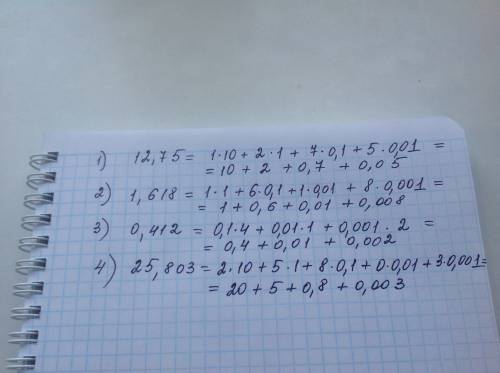 1) 12,75 = 1·10 + 2·1 + 7·0,1 + 5·0,01 =
= 10 + 2 + 0,7 + 0,05
2) 1,618 = 1·1 + 6·0,1 + 1·0,01 + 8·0,001 =
= 1 + 0,6 + 0,01 + 0,008
3) 0,412 = 0,1·4 + 0,01·1 + 0,001·2 =
= 0,4 + 0,01 + 0,002
4) 25,803 = 2·10 + 5·1 + 8·0,1 + 0·0,01 + 3·0,001 =
= 20 + 5 + 0,8 + 0,003